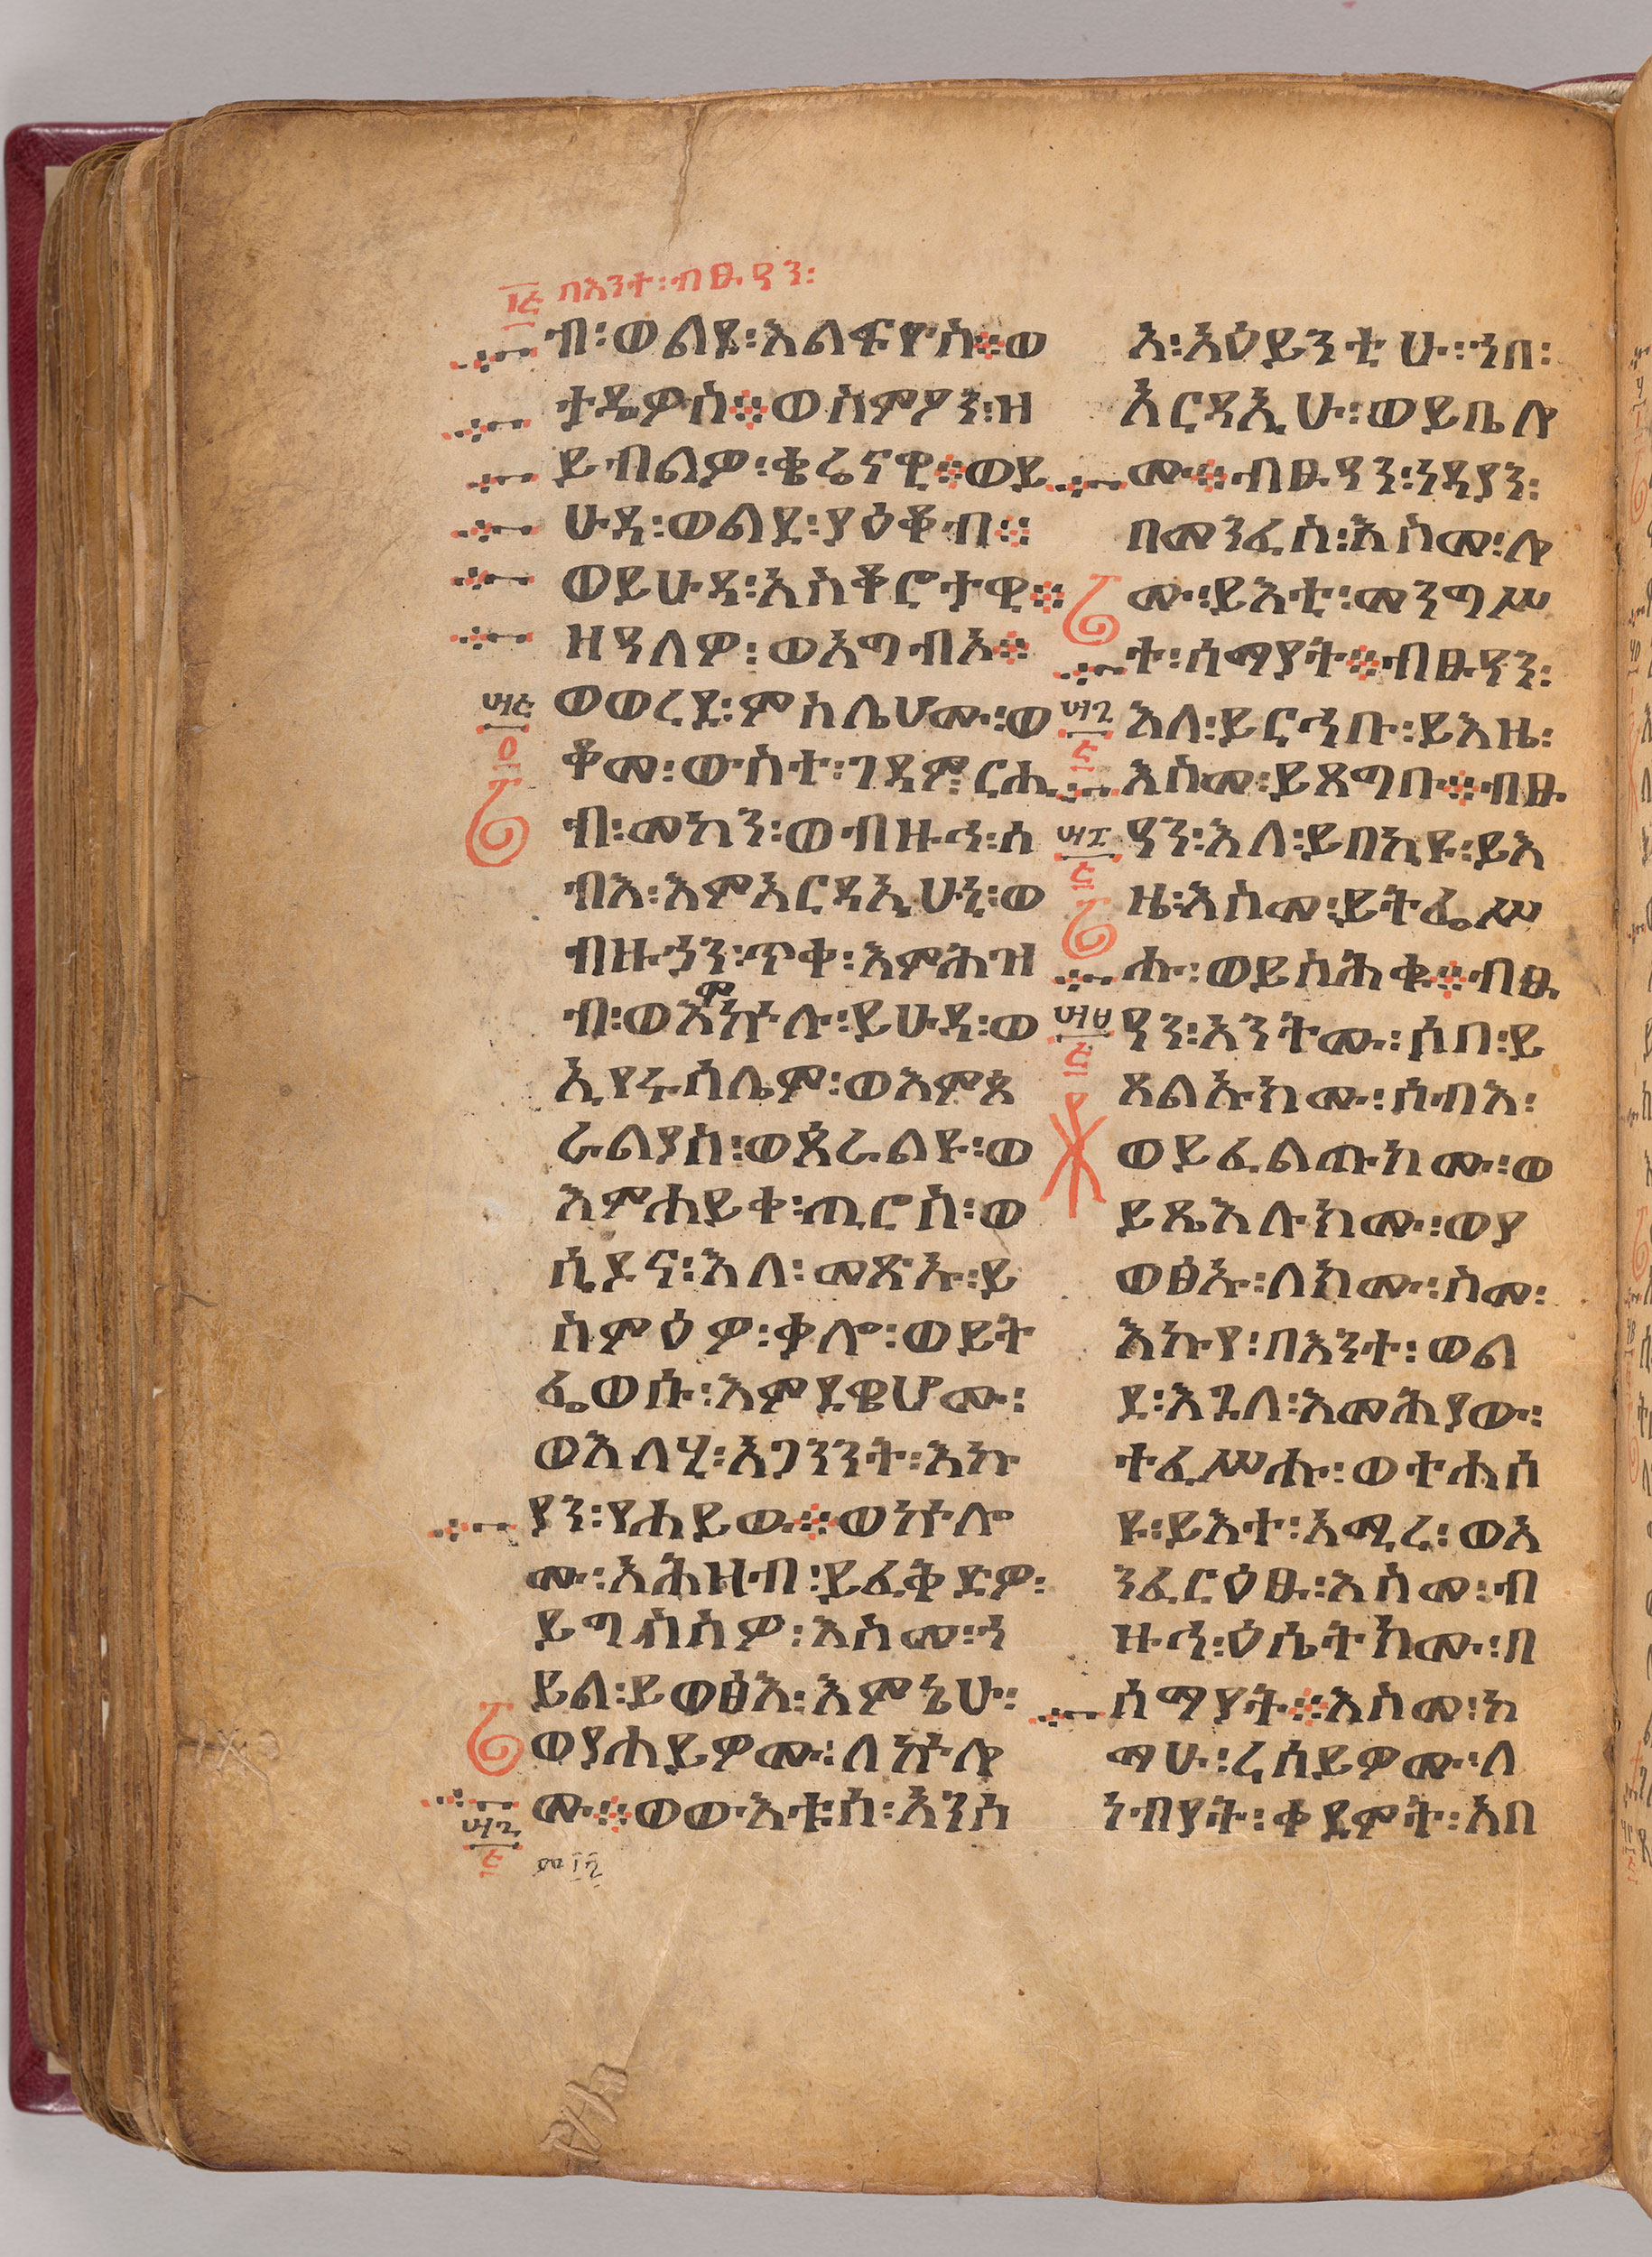 ፲፭ በእንተ፡ብፁዓን፡
ብ፡ወልደ፡እልፍዮስ፨ወ
ታዴዎስ፨ወስምዖን፡ዘ
ይብልዎ፡ቄሬናዊ፨ወይ
ሁዳ፡ወልደ፡ያዕቆብ፨
ወይሁዳ፡አስቆሮታዊ፨
ዘዓለዎ፡ወአግብአ፨
ወወረደ፡ምስሌሆሙ፡ወ
ቆመ፡ውስተ፡ገዳም፡ርሒ
ብ፡መካን፡ወብዙኅ፡ሰ
ብእ፡እምአርዳኢሁኒ፡ወ
ብዙኃን፡ጥቀ፡እምሕዝ
ብ፡ወእምኵሉ፡ይሁዳ፡ወ
ኢየሩሳሌም፡ወእምጰ
ራልያስ፡ወጰራልዩ፡ወ
እምሐይቀ፡ጢሮስ፡ወ
ሲዶና፡እለ፡መጽኡ፡ይ
ስምዕዎ፡ቃሎ፡ወይት
ፌወሱ፡እምደዌሆሙ፡
ወእለሂ፡አጋንንት፡እኩ
ያን፡የሐይው፨ወኵሎ
ሙ፡አሕዛብ፡ይፈቅድዎ፡
ይግስስዎ፡እስመ፡ኀ
ይል፡ይወፅእ፡እምኔሁ፡
ወያሐይዎሙ፡ለኵሎ
ሙ፨ወውእቱሰ፡አንሰ
፵፮
አ፡አዕይንቲሁ፡ኀበ፡
አርዳኢሁ፡ወይቤሎ
ሙ፨ብፁዓን፡ነዳያን፡
በመንፈስ፡እስመ፡ሎ
ሙ፡ይእቲ፡መንግሥ
ተ፡ሰማያት፨ብፁዓን፡
እለ፡ይርኅቡ፡ይእዜ፡
እስመ፡ይጸግቡ፨ብፁ
ዓን፡እለ፡ይበኪዩ፡ይእ
ዜ፡እስመ፡ይትፌሥ
ሑ፡ወይስሕቁ፨ብፁ
ዓን፡አንትሙ፡ሶበ፡ይ
ጸልኡክሙ፡ሰብእ፡
ወይፈልጡክሙ፡ወ
ይጼእሉክሙ፡ወያ
ወፅኡ፡ለክሙ፡ስመ፡
እኩየ፡በእንተ፡ወል
ደ፡እጓለ፡እመሕያው፡
ተፈሥሑ፡ወተሐሰ
ዩ፡ይእተ፡አሚረ፡ወአ
ንፈርዕፁ፡እስመ፡ብ
ዙኅ፡ዕሴትክሙ፡በ
ሰማያት፨እስመ፡ከ
ማሁ፡ረሰይዎሙ፡ለ
ነብያት፡ቀደምት፡አበ